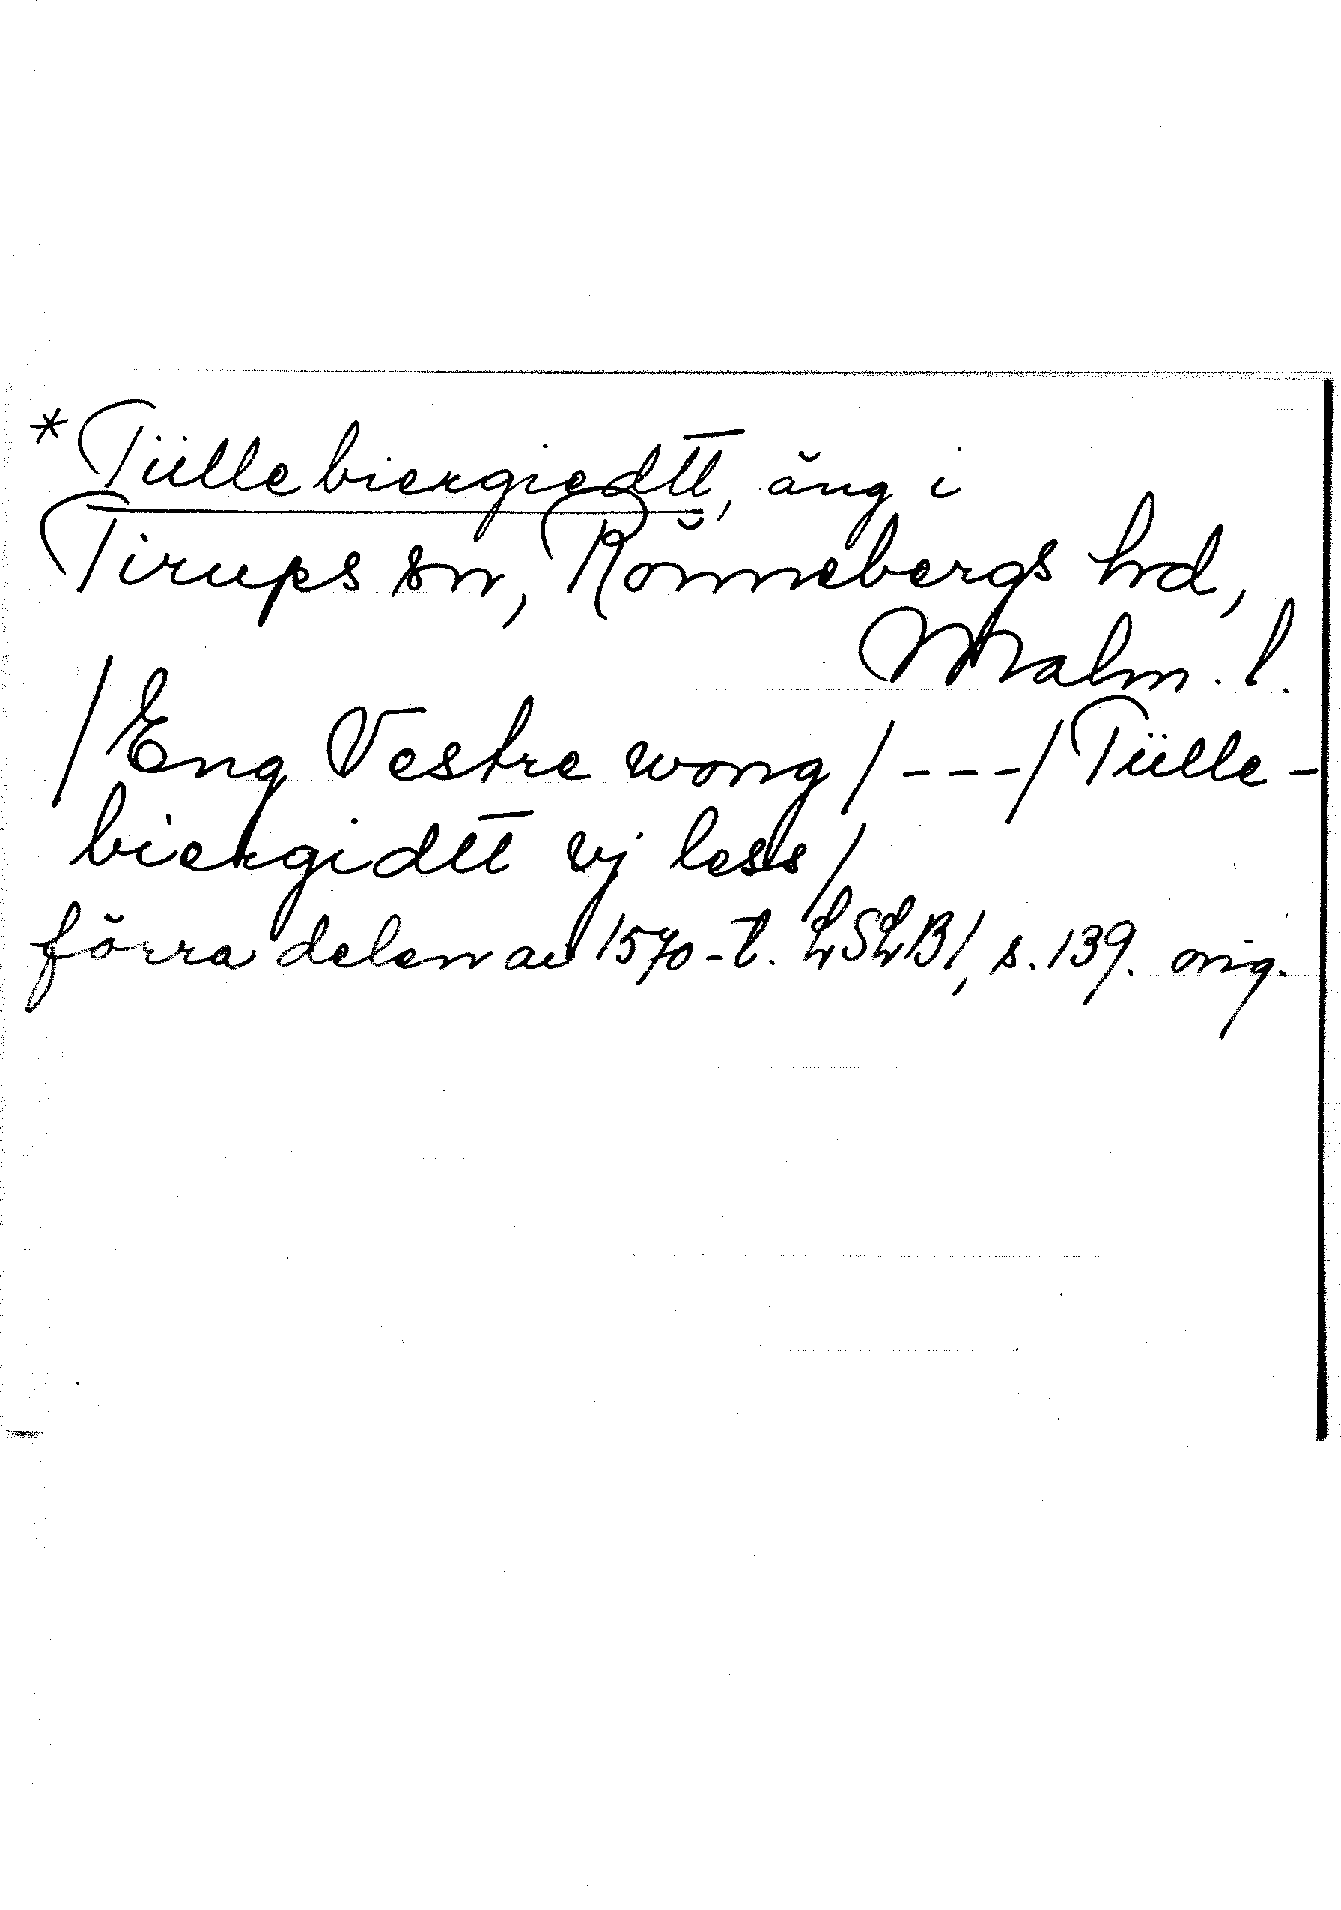 *Tüllebiergiedtt, äng i
Tirups sn, Rönnebergs hd,
Malm. l.
/Eng Vestre wong/---/Tülle-
biergidtt vj less/
förra delen av 1570-t. LSLB1, s. 139. orig.